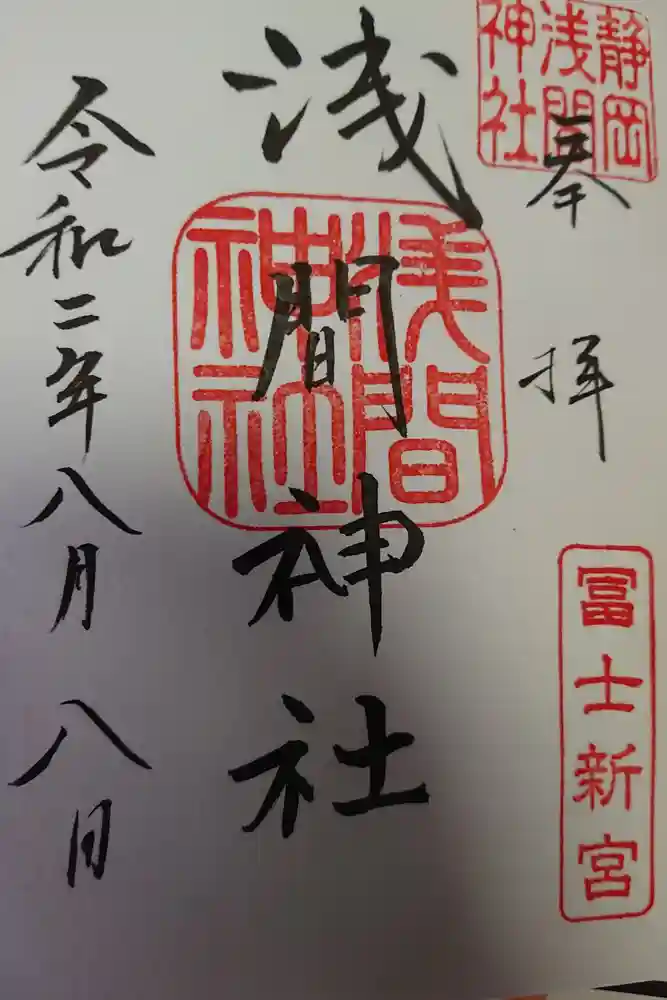 奉拝
静岡
浅間
神社
冨士新宮
浅間神社
浅間
神社
令和二年八月八日